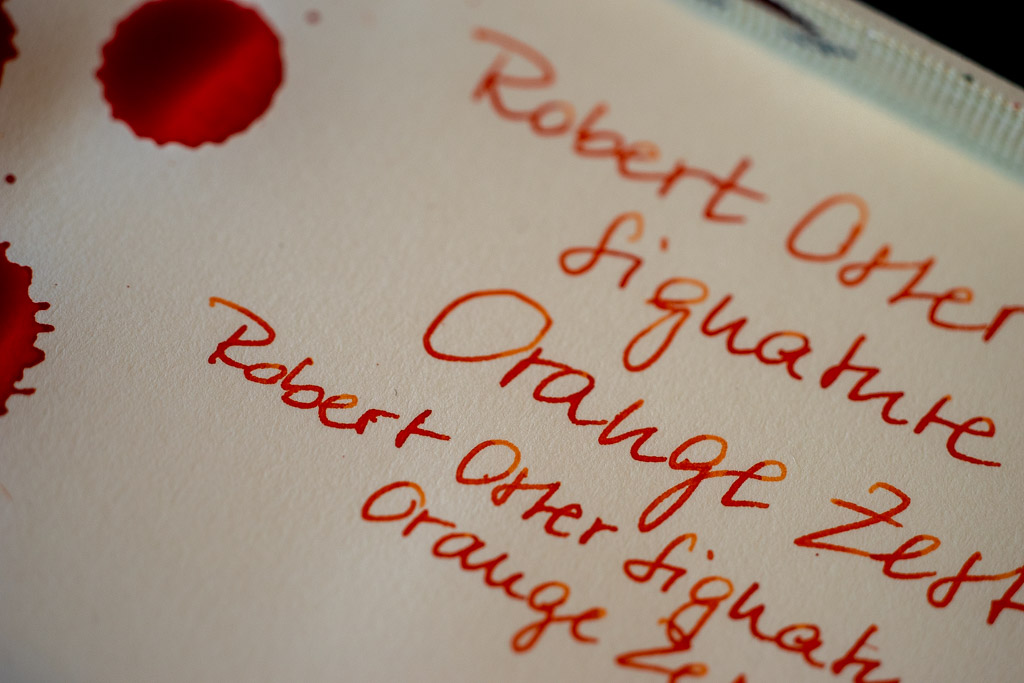 Robert Oster
Signature
Orange Zest
Robert Oster Signatu
Orange Ze